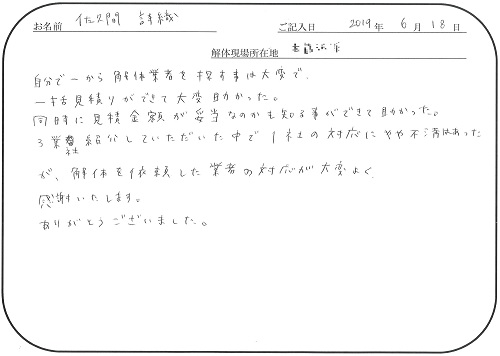 お名前 佐久間 詩織 ご記入日 2019 年 6 月 18 日
解体現場所在地
自分で一から解体業者を探す事は大変で、
一括見積りができて大変助かった。
同時に見積金額が妥当なのかも知る事ができて助かった。
3業者紹介していただいた中で1社の対応にやや不満はあった
社
が、解体を依頼した業者の対応が大変よく
感謝いたします。
ありがとうございました。